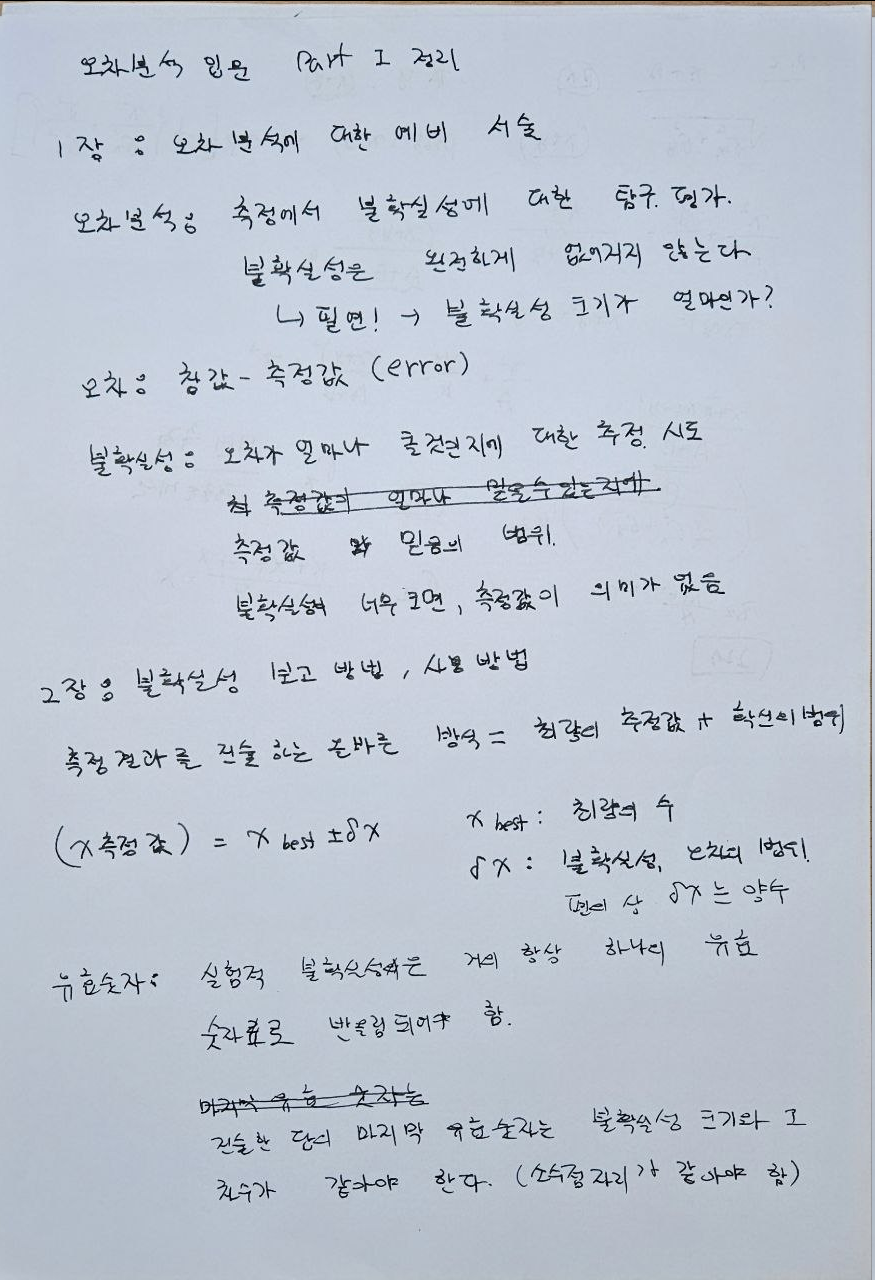 오차분석 입문 Part I 정리
1장 : 오차분석에 대한 예비 서술
오차분석 : 측정에서 불확실성에 대한 탐구. 평가.
불확실성은 완전하게 없어지지 않는다
↳ 필연! → 불확실성 크기가 얼마인가?
오차 : 참값 - 측정값 (error)
불확실성 : 오차가 얼마나 클것인지에 대한 추정 시도
측정값의 얼마나 믿을수있는지에
측정값 믿음의 범위.
불확실성이 너무 크면, 측정값이 의미가 없음
2장 : 불확실성 보고 방법, 사용 방법
측정 결과를 진술 하는 올바른 방식 = 최량의 추정값 + 확신의 범위
(x 측정값) = x best ± δx
x best : 최량의 수
δx : 불확실성, 오차의 범위.
편의 상 δx는 양수
유효숫자 : 실험적 불확실성은 거의 항상 하나의 유효
숫자로 반올림 되어야 함.
마지막 유효 숫자는
진술한 답의 마지막 유효숫자는 불확실성 크기와 그
차수가 같아야 한다. (소수점 자리가 같아야 함)